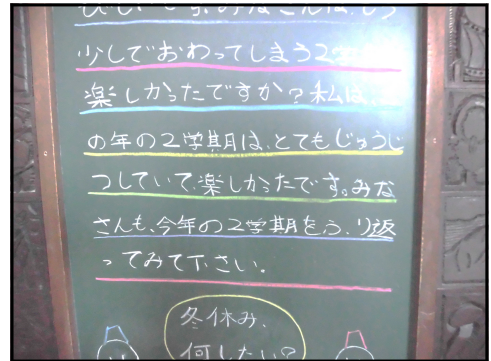 しいです。みなさんは、もう
少しでおわってしまう2学
楽しかったですか?私は、
の年の2学期は、とてもじゅうじ
つしていて、楽しかったです。みな
さんも、今年の2学期をふり返
ってみて下さい。
冬休み、
何したい?